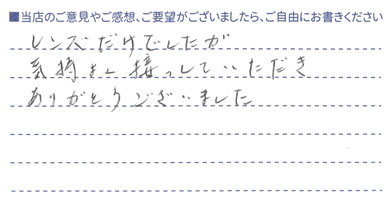 ■当店のご意見やご感想、ご要望がございましたら、ご自由にお書きください
レンズだけでしたが
気持よく接っしていただき
ありがとうございました